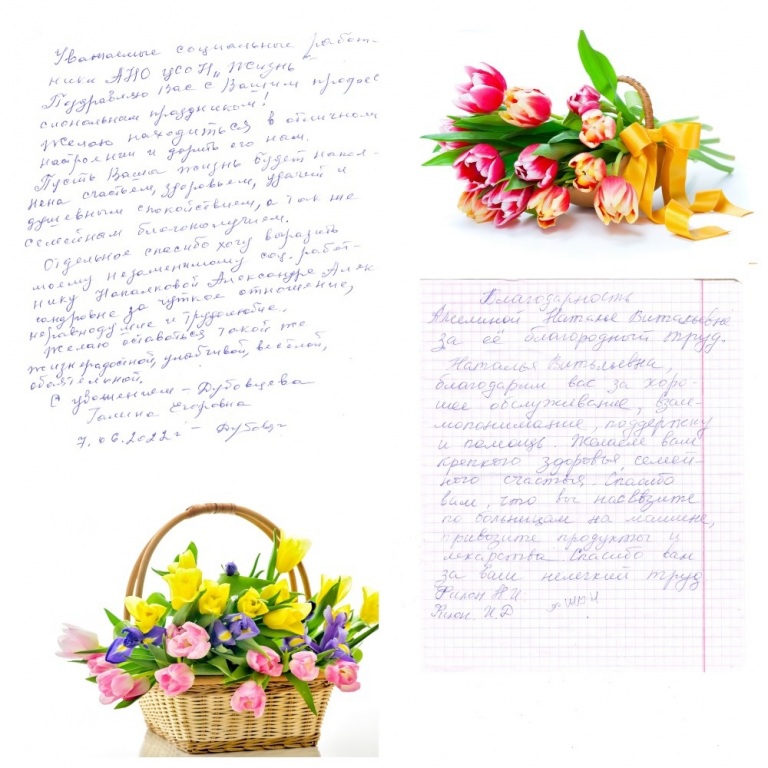 Уважаемые социальные работ-
ники АНО ЦСОН „Жизнь"
Поздравляю Вас с Вашим професс
сиональным праздником!
Желаю находиться в отличном
настроении и дарить его нам.
Пусть Ваша жизнь будет напол-
нена счастьем, здоровьем, удачей и
душевным спокойствием, а так же
семейным благополучием.
Отдельное спасибо хочу выразить
моему незаменимому соц. работ-
нику Напалковой Александре Алек
сандровне за чуткое отношение,
неравнодушие и трудолюбие.
Желаю оставаться такой же
жизнерадостной, улыбчивой, весёлой,
обаятельной.
С уважением - Дубовцева
Галина Егоровна
7.06.2022г -
Благодарность
Амелиной Наталье Витальевне
за её благородный труд.
Наталья Витальевна,
благодарим вас за хоро-
шее обслуживание, взаи-
мопонимание, поддержку
и помощь. Желаем вам
крепкого здоровья, семей-
ного счастья. Спасибо
вам, что вы нас возите
по больницам на машине,
привозите продукты и
лекарства. Спасибо вам
за ваш нелегкий труд